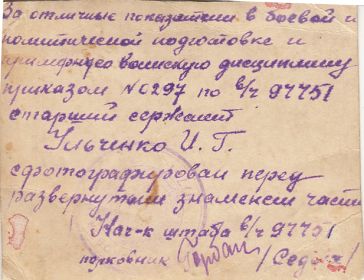 За отличные показатели в боевой и
политической подготовке и
примерную воинскую дисциплину
приказом №0297 по в/ч 97751
старший сержант
Ульченко И. Г.
сфотографирован перед
развернутым знаменем части
Нач-к штаба в/ч 97751
полковник